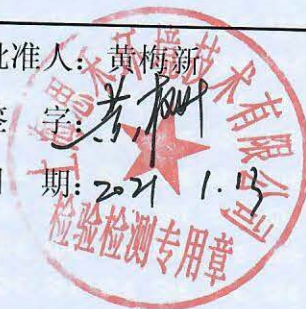 批准人: 黄梅新
签 字:
日 期: 2021 1.13
上海思术环境技术有限公司
检验检测专用章